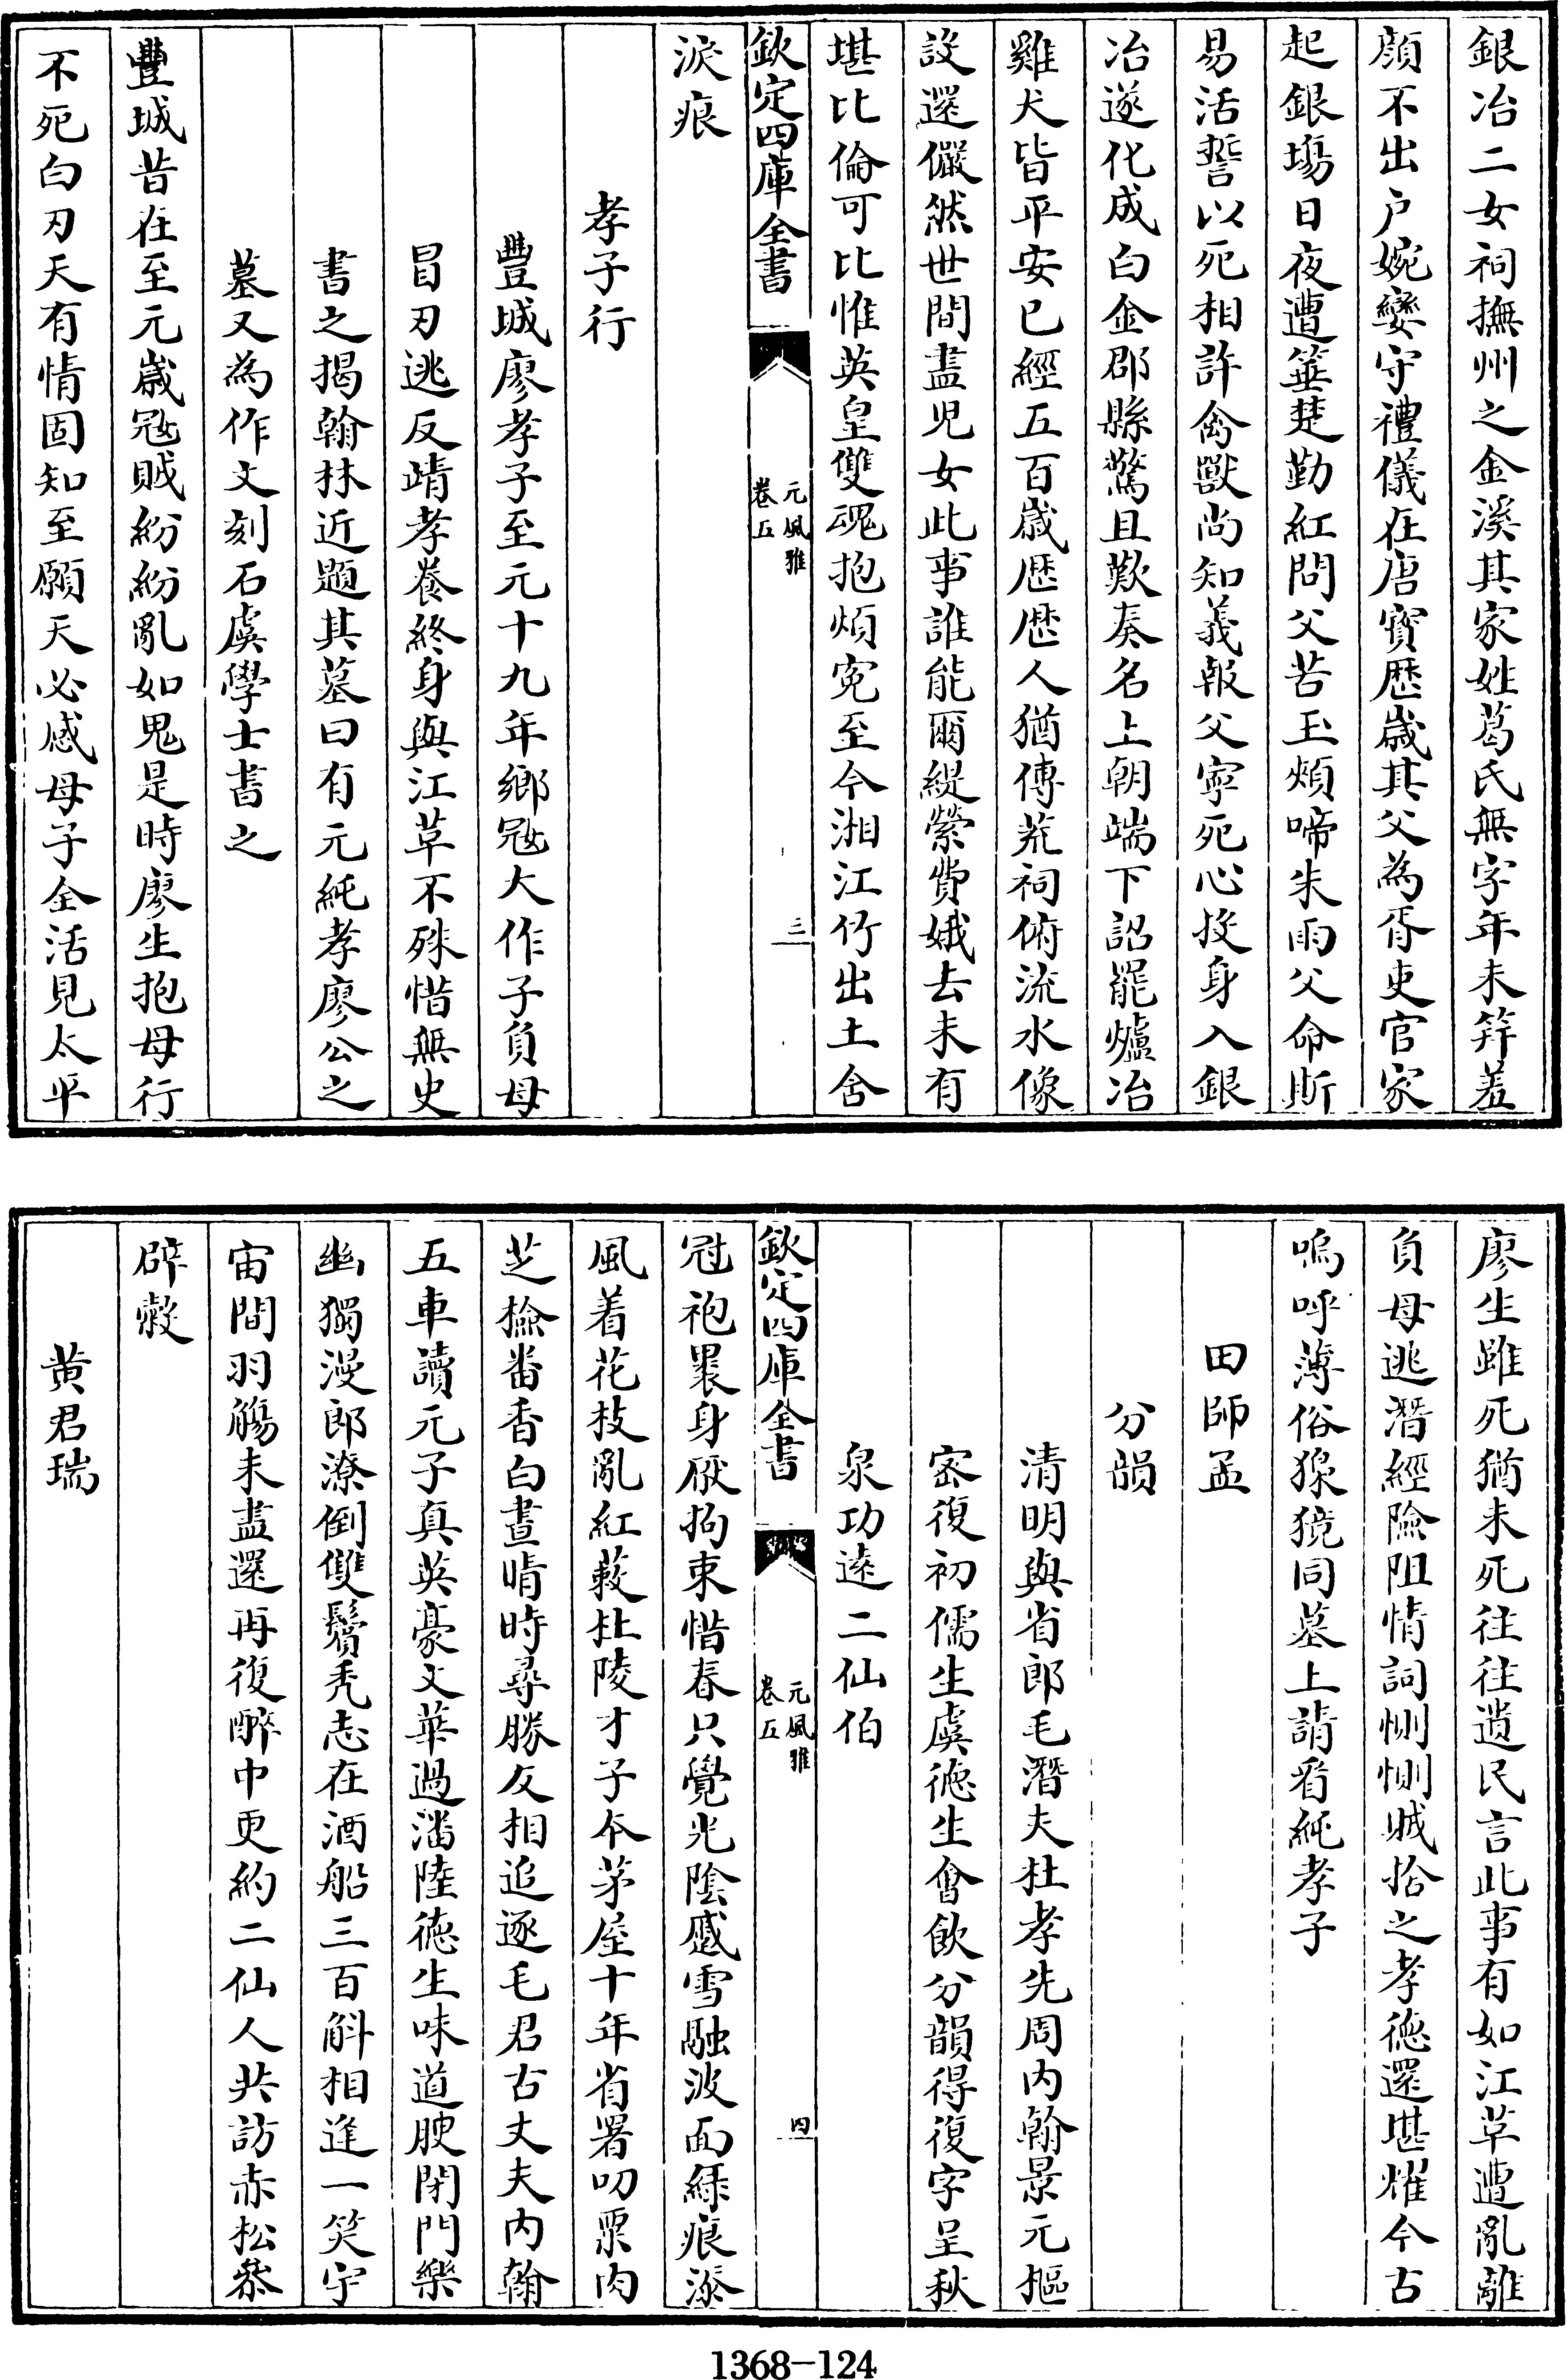 銀冶二女祠撫州之金溪其家姓葛氏無字年未笄羞
顔不出户婉孌守禮儀在唐寳歴歳其父為胥吏官家
起銀塲日夜遭箠楚勤紅問父苦玉頰啼朱雨父命斯
易活誓以死相許禽獸尚知義報父寧死心投身入銀
冶遂化成白金郡縣驚且歎奏名上朝端下詔罷爐冶
雞犬皆平安已經五百歳歴歴人猶傳荒祠俯流水像
設還儼然世間盡兒女此事誰能爾緹縈費娥去未有
堪比倫可比惟英皇雙魂抱煩寃至今湘江竹出土含
欽定四庫全書
元風雅
卷五
三
淚痕
孝子行
豐城廖孝子至元十九年鄉冦大作子負母
冒刃逃反靖孝養終身與江草不殊惜無史
書之揭翰林近題其墓曰有元純孝廖公之
墓又為作文刻石虞學士書之
豐城昔在至元歳冦賊紛紛亂如鬼是時廖生抱母行
不死白刃天有情固知至願天必感母子全活見太平
廖生雖死猶未死往往遺民言此事有如江草遭亂離
負母逃潛經險阻情詞惻惻賊捨之孝徳還堪耀今古
嗚呼薄俗獍同墓上請看純孝子
田師孟
分韻
清明與省郎毛潛夫杜孝先周内翰景元樞
密復初儒生虞徳生會飲分韻得復字呈秋
泉功逺二仙伯
欽定四庫全書
元風雅
卷五
四
冠袍褁身厭拘束惜春只覺光陰蹙雪融波面緑痕添
風着花枝亂紅蔌杜陵才子夲茅屋十年省署叨粟肉
芝檢番香白晝晴時尋勝友相追逐毛君古丈夫内翰
五車讀元子真英豪文華過潘陸徳生味道腴閉門樂
幽獨漫郎潦倒雙鬢秃志在酒船三百斛相逢一笑宇
宙間羽觴未盡還再復醉中更約二仙人共訪赤松叅
辟榖
黄君瑞
1368-124